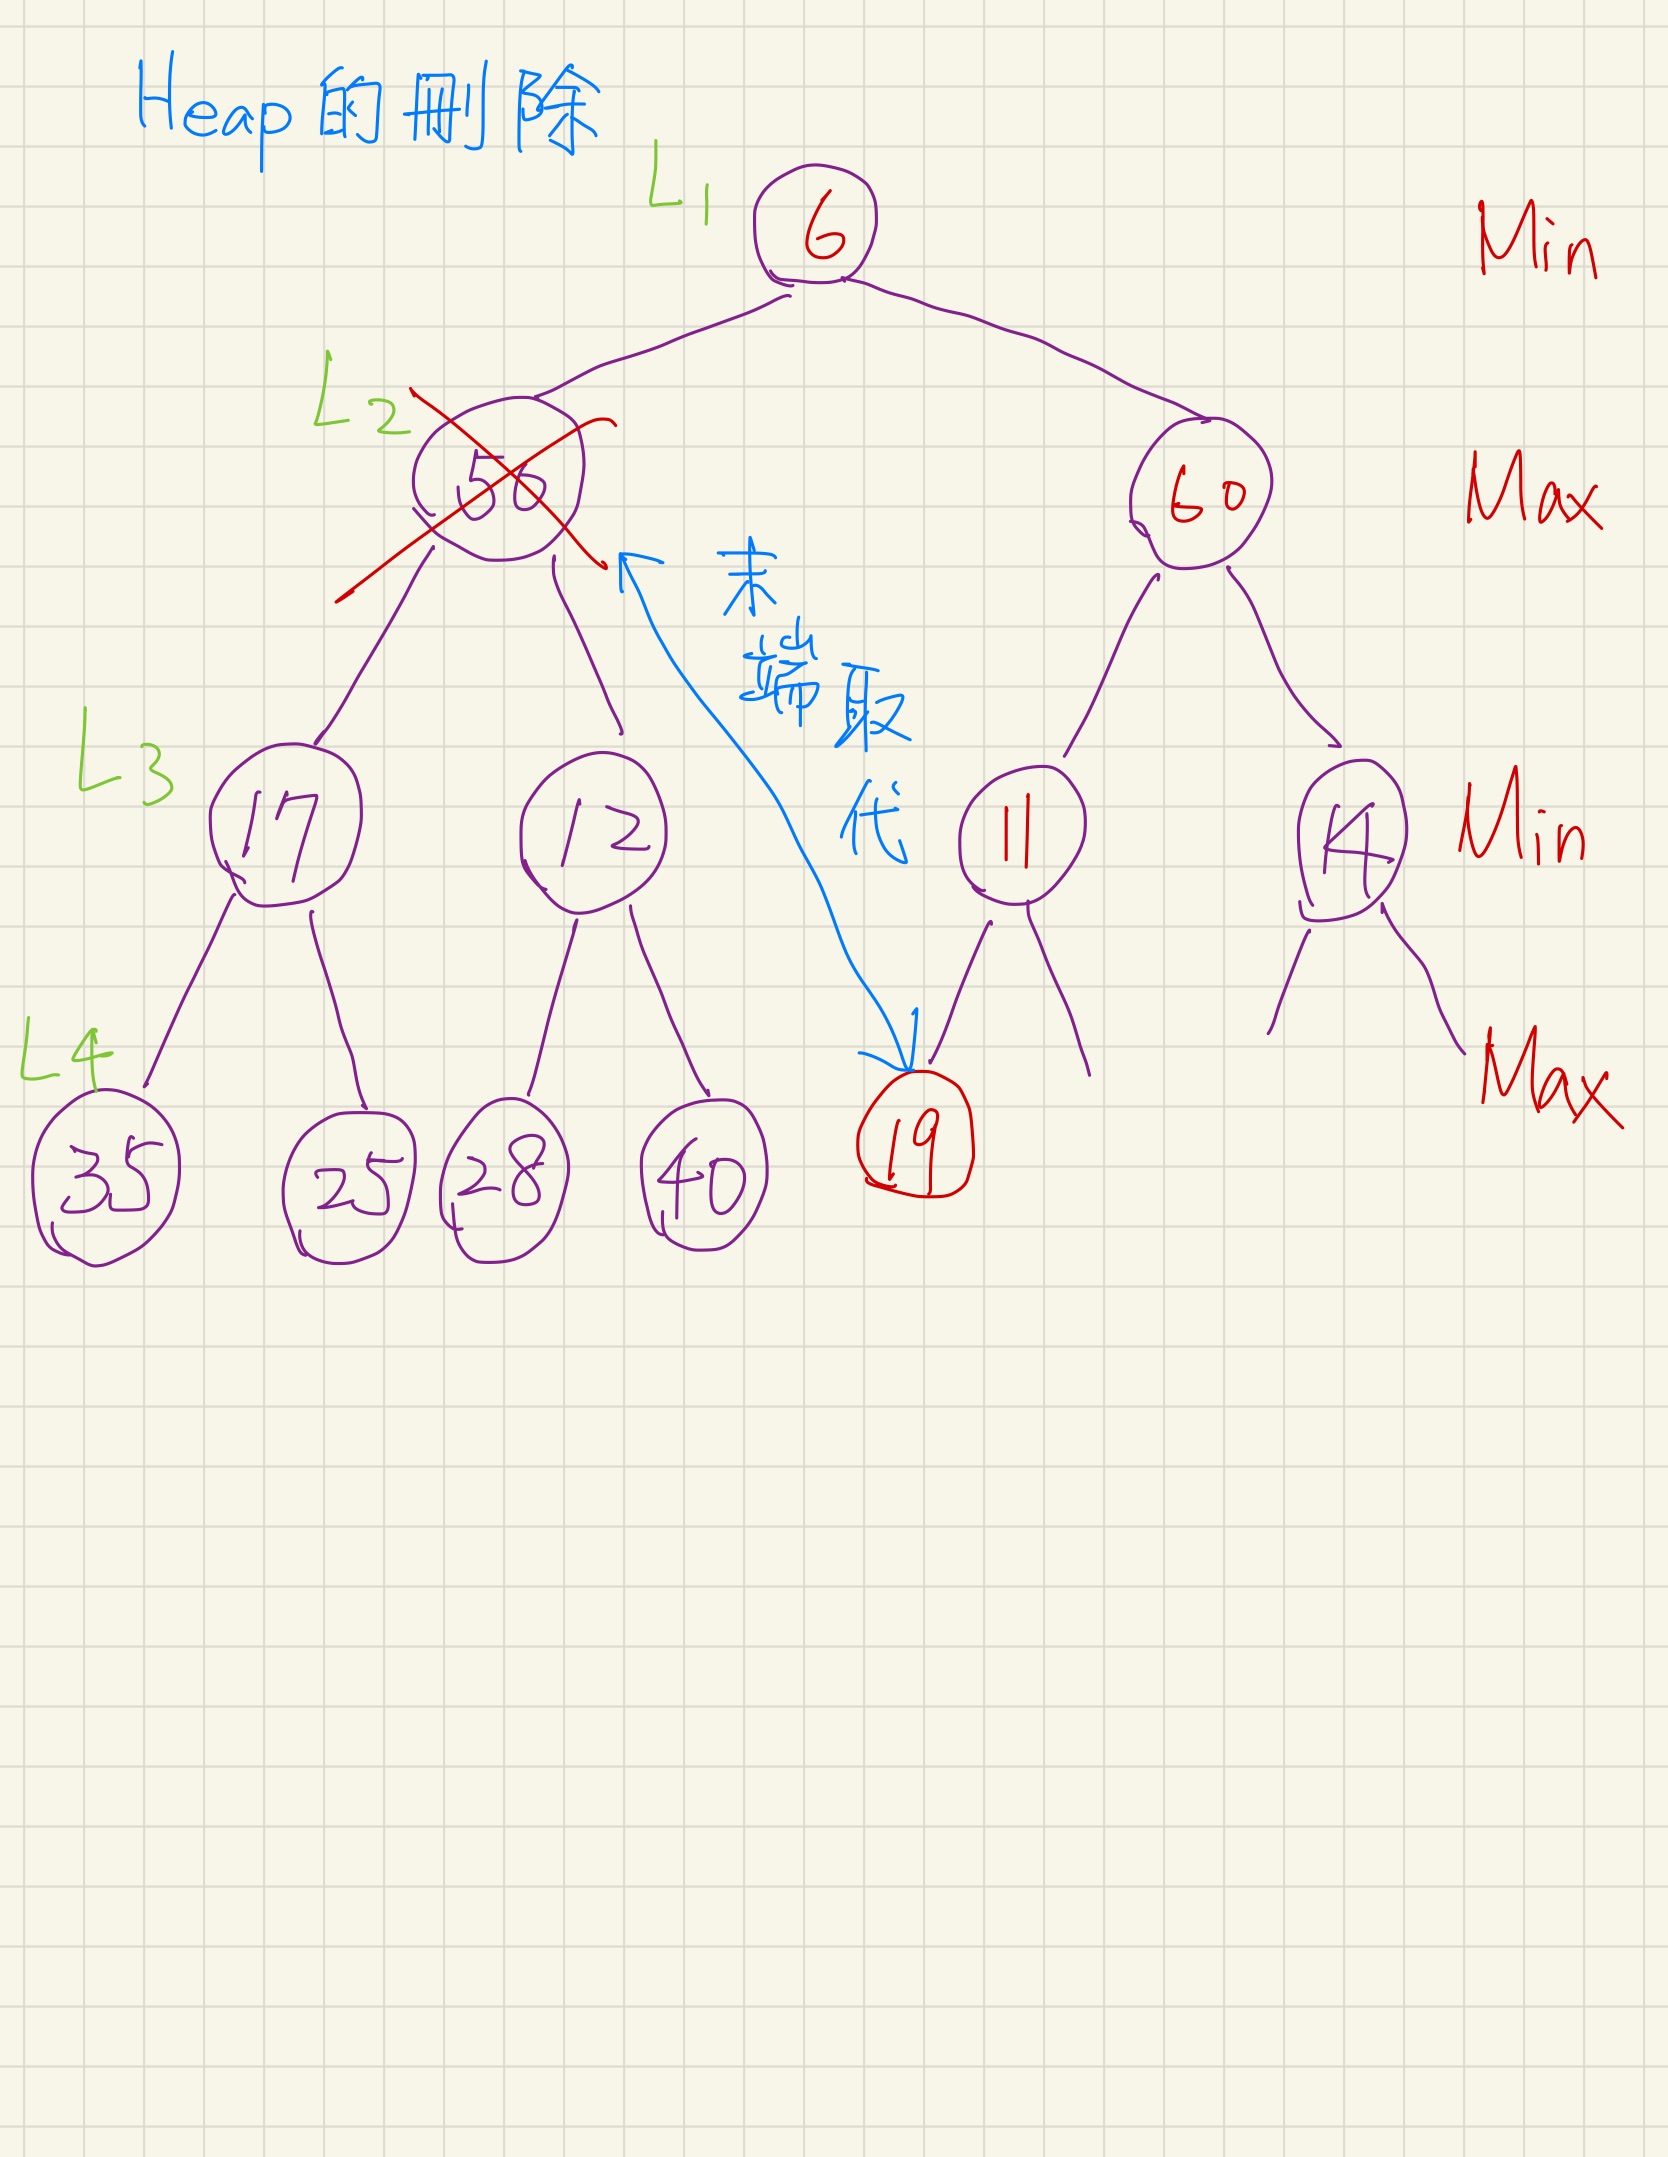 Heap的刪除
L1
6
Min
L2
56
60
Max
末端取代
L3
17
12
11
14
Min
L4
35
25
28
40
19
Max